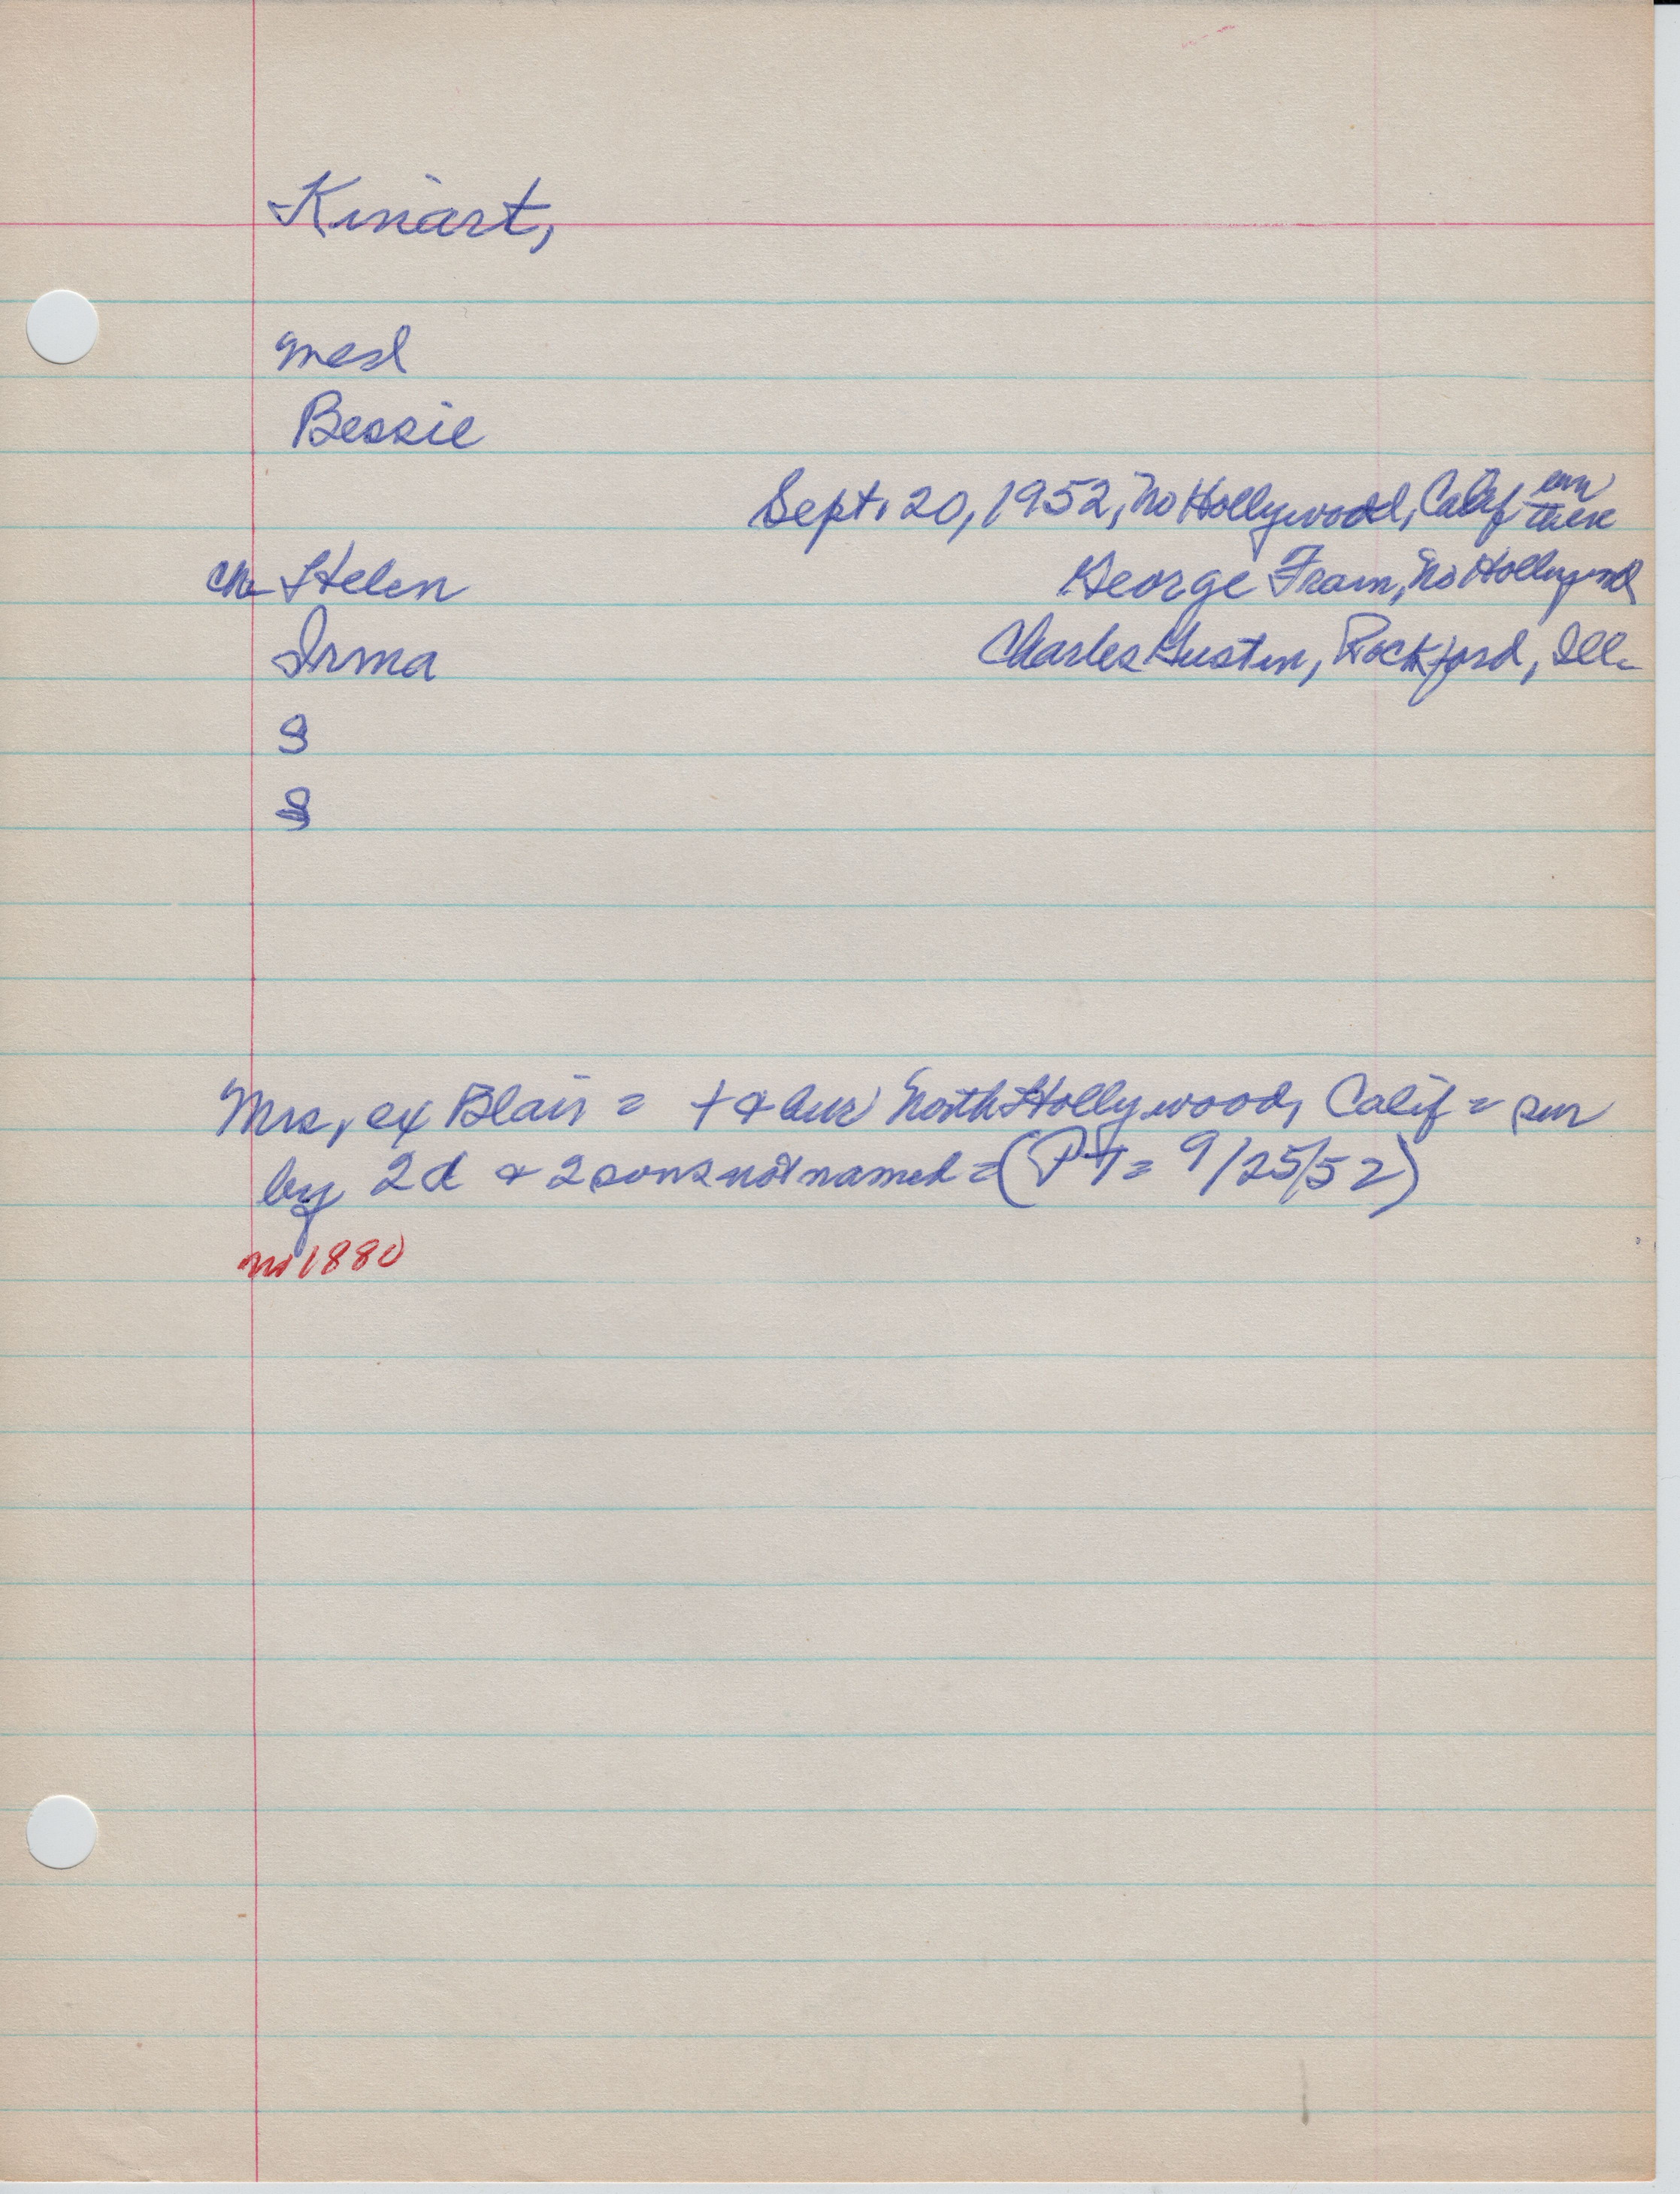 Kinart,
Merl
Bessie
Sept. 20, 1952, No Hollywood, Calif
Ch Helen George Fram, No Hollywood
Irma Charles Gustin, Rockford, Ill.
S
S
Mrs, ex Blair = + & bur North Hollywood, Calif = sur
by 2d & 2 sons not named = (PT = 9/25/52)
1880